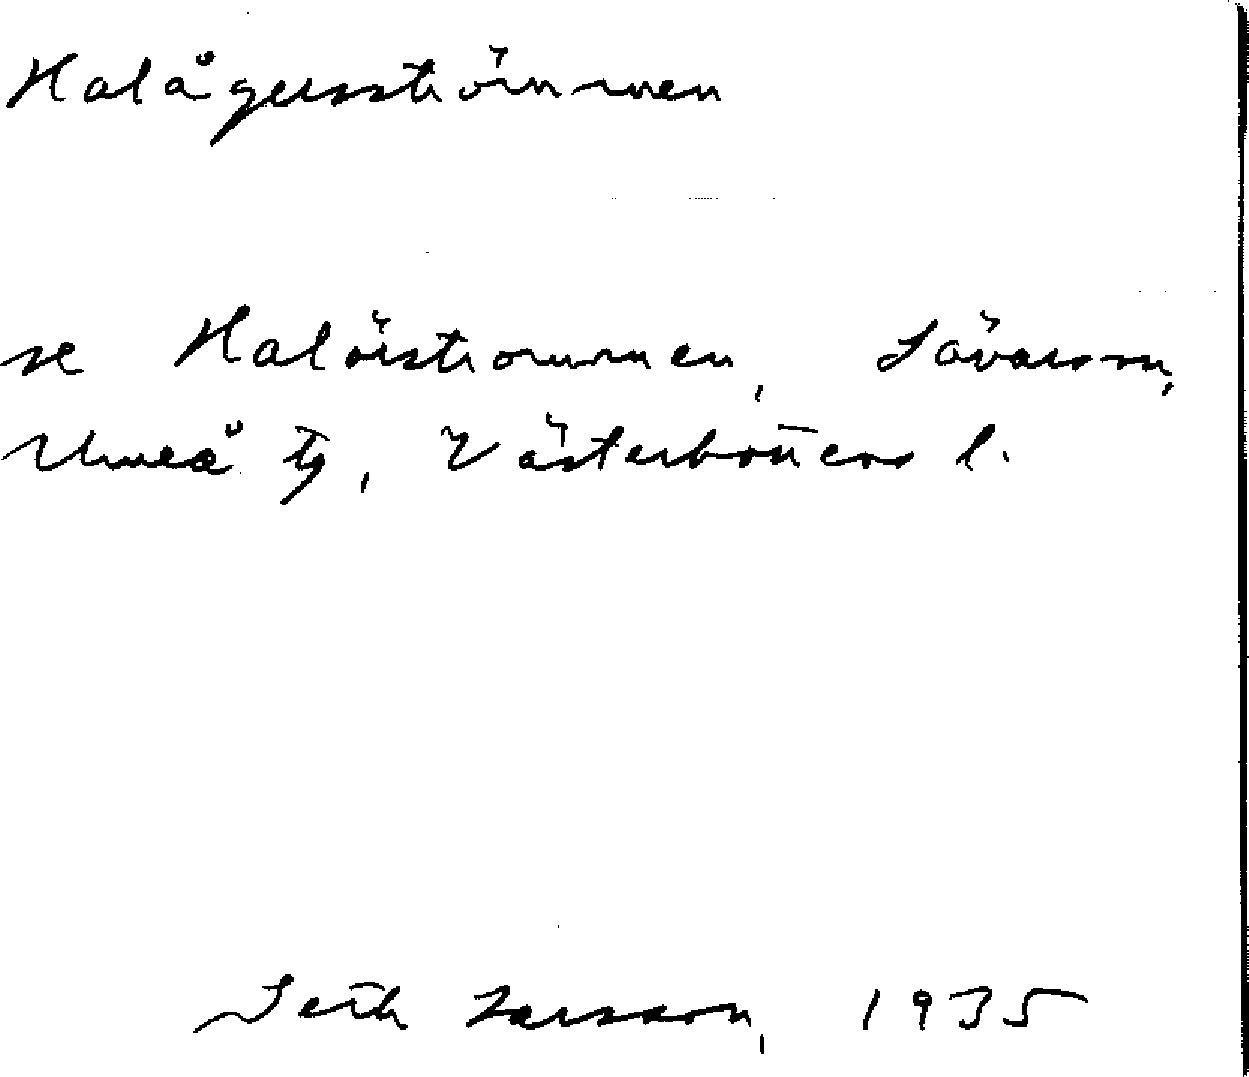 Halågersströmmen
se Halörströmmen, Sävar sn,
Umeå tg, Västerbottens l.
Seth Larsson, 1935